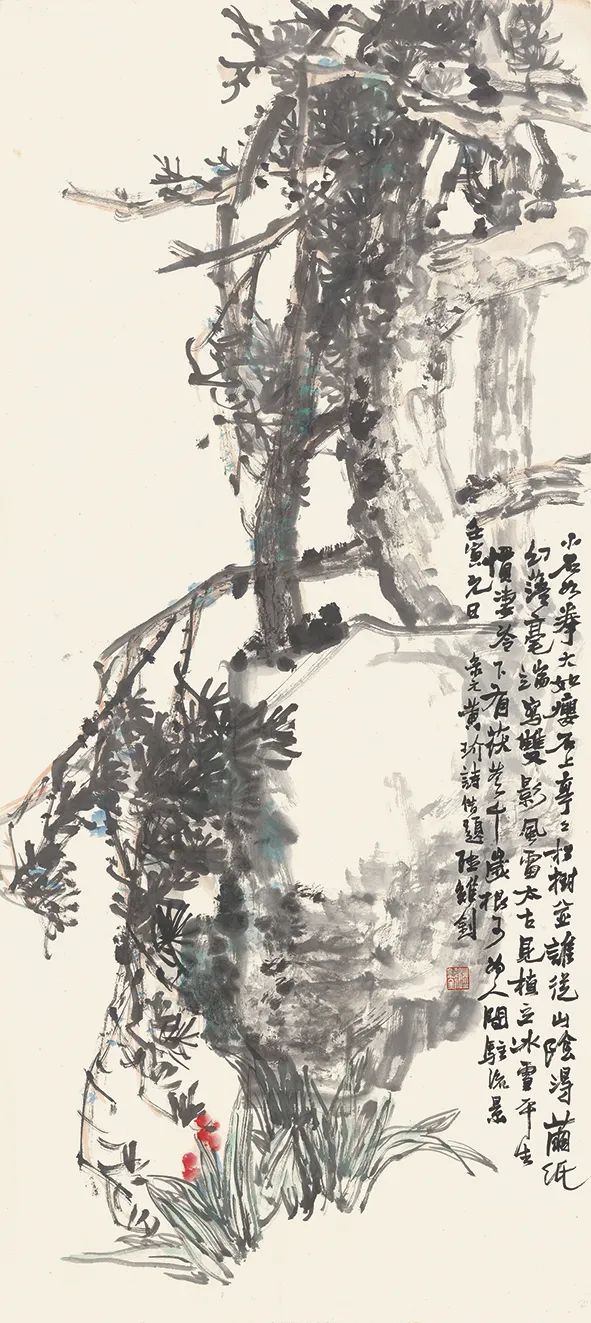 小石如拳大如癭石上亭亭松樹並誰從山陰得繭紙
幻落毫端寫雙影風雷太古見植立冰雪平生
慣淒冷下有茯苓千歲根可為人間駐流景
壬寅元日 元黃玠詩借題陸維釗